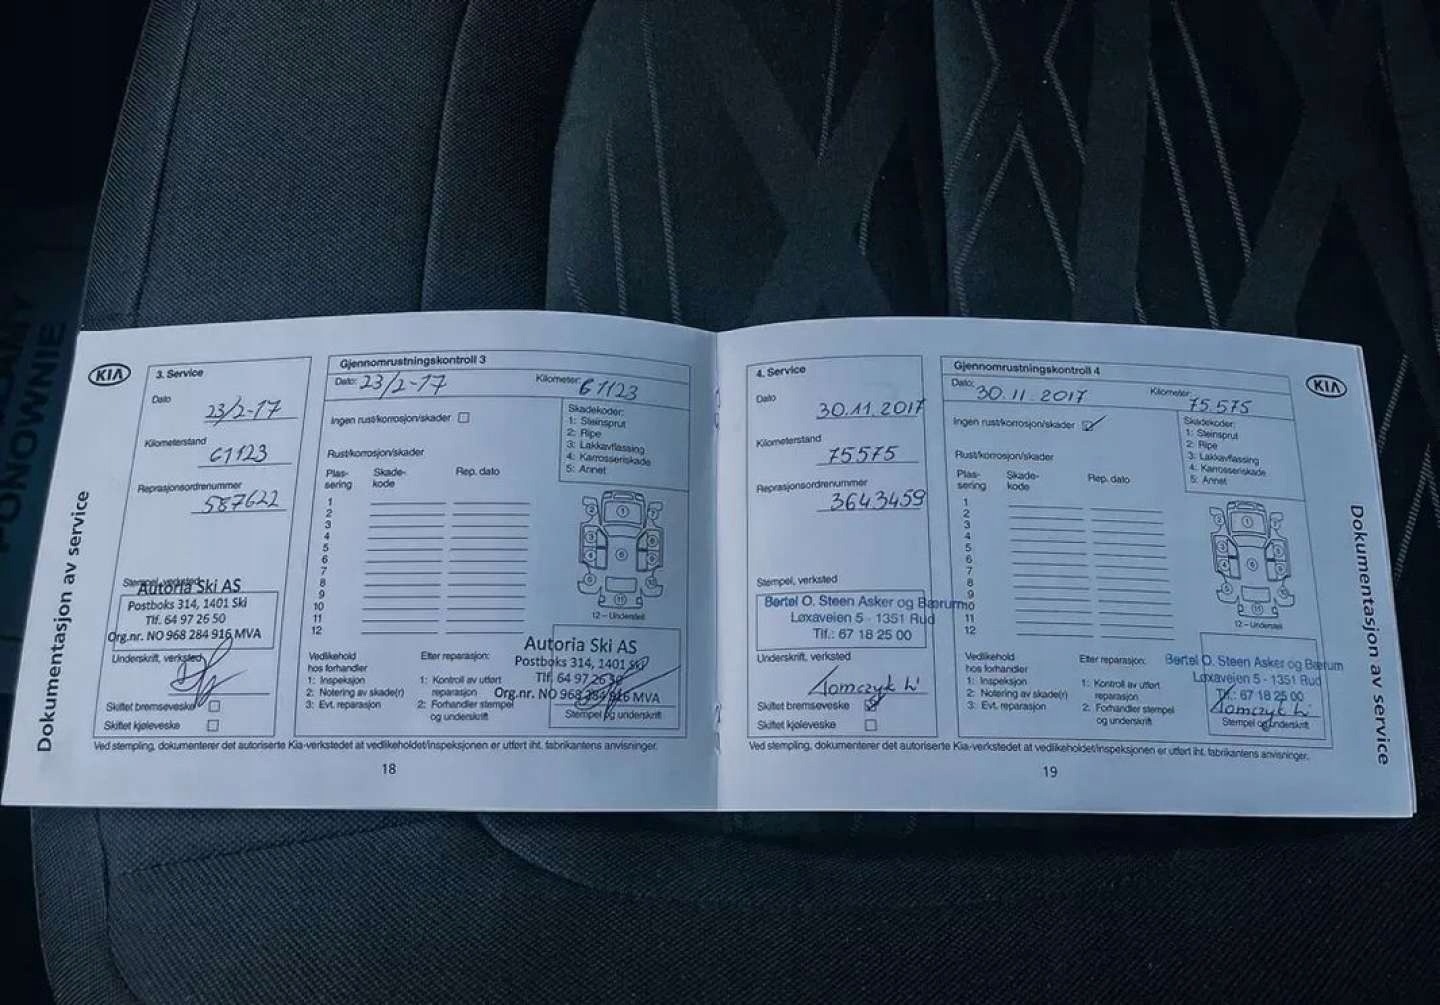 KIA
Dokumentasjon av service
3. Service
Dato
23/2-17
Kilometerstand
61123
Reprasjonsordrenummer
587622
Stempel, verksted
Autoria Ski AS
Postboks 314, 1401 Ski
Tlf. 64 97 26 50
Org.nr. NO 968 284 916 MVA
Underskrift, verksted
Skiftet bremsevæske
Skiftet kjølevæske
Gjennomrustningskontroll 3
Dato: 23/2-17 Kilometer: 61123
Ingen rust/korrosjon/skader
Skadekoder:
1: Steinsprut
2: Ripe
3: Lakkavflassing
4: Karrosseriskade
5: Annet
Rust/korrosjon/skader
Plas-
sering
Skade-
kode
Rep. dato
1
2
3
4
5
6
7
8
9
10
11
12
12 – Understell
Vedlikehold
hos forhandler
1: Inspeksjon
2: Notering av skade(r)
3: Evt. reparasjon
Etter reparasjon:
1: Kontroll av utført
reparasjon
2: Forhandler stempel
og underskrift
Autoria Ski AS
Postboks 314, 1401 Ski
Tlf. 64 97 26 50
Org.nr. NO 968 284 916 MVA
Stempel og underskrift
Ved stempling, dokumenterer det autoriserte Kia-verkstedet at vedlikeholdet/inspeksjonen er utført iht. fabrikantens anvisninger.
18
4. Service
Dato
30.11.2017
Kilometerstand
75575
Reprasjonsordrenummer
3643459
Stempel, verksted
Bertel O. Steen Asker og Bærum
Løxaveien 5 - 1351 Rud
Tlf.: 67 18 25 00
Underskrift, verksted
Tomczyk
Skiftet bremsevæske
Skiftet kjølevæske
Gjennomrustningskontroll 4
Dato: 30.11.2017 Kilometer: 75575
Ingen rust/korrosjon/skader
Skadekoder:
1: Steinsprut
2: Ripe
3: Lakkavflassing
4: Karrosseriskade
5: Annet
Rust/korrosjon/skader
Plas-
sering
Skade-
kode
Rep. dato
1
2
3
4
5
6
7
8
9
10
11
12
12 – Understell
Vedlikehold
hos forhandler
1: Inspeksjon
2: Notering av skade(r)
3: Evt. reparasjon
Etter reparasjon:
1: Kontroll av utført
reparasjon
2: Forhandler stempel
og underskrift
Bertel O. Steen Asker og Bærum
Løxaveien 5 - 1351 Rud
Tlf.: 67 18 25 00
Tomczyk
Stempel og underskrift
Ved stempling, dokumenterer det autoriserte Kia-verkstedet at vedlikeholdet/inspeksjonen er utført iht. fabrikantens anvisninger.
19
KIA
Dokumentasjon av service
PONOWNIE